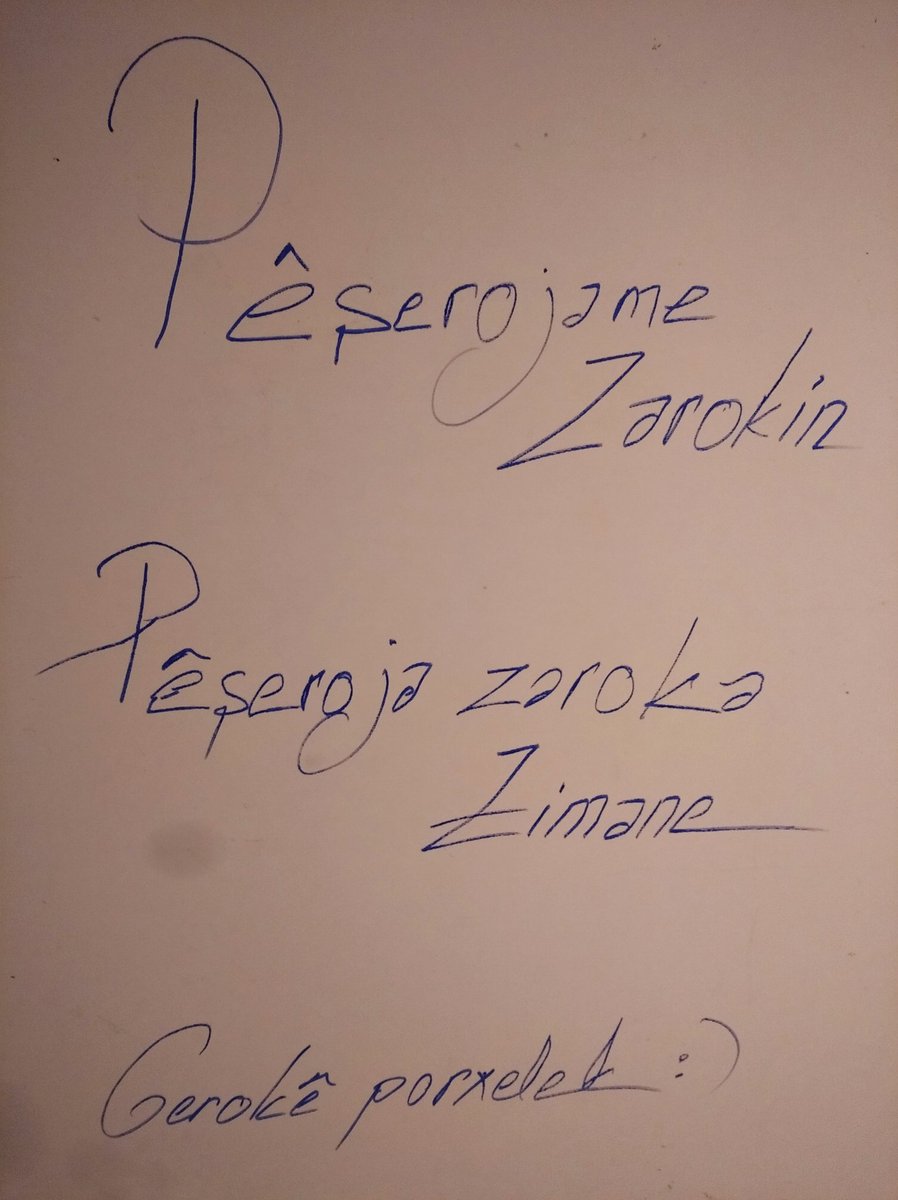 Pêşerojame
Zarokin
Pêşeroja zaroka
Zimane
Gerokê porxelek :)